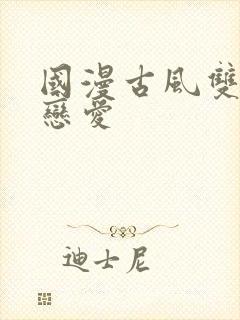 國漫古風雙
戀愛
迪士尼